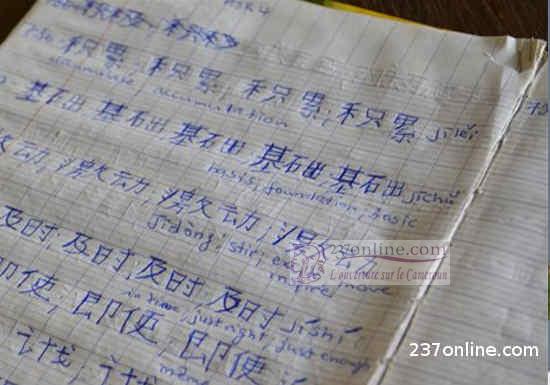 HSK4
积极, 积极
积累, 积累, 积累, 积累 jīlěi
accumulate accumulation
基础 基础 基础, 基础, 基础 jīchǔ
basis, foundation, basic
激动, 激动, 激动
jīdòng; stir; move
inspire
及时, 及时, 及时, 及时 jíshí
in time, just right, just enough
即使, 即使, 即使
237online.com
L'ouverture sur le Cameroun
237online.com